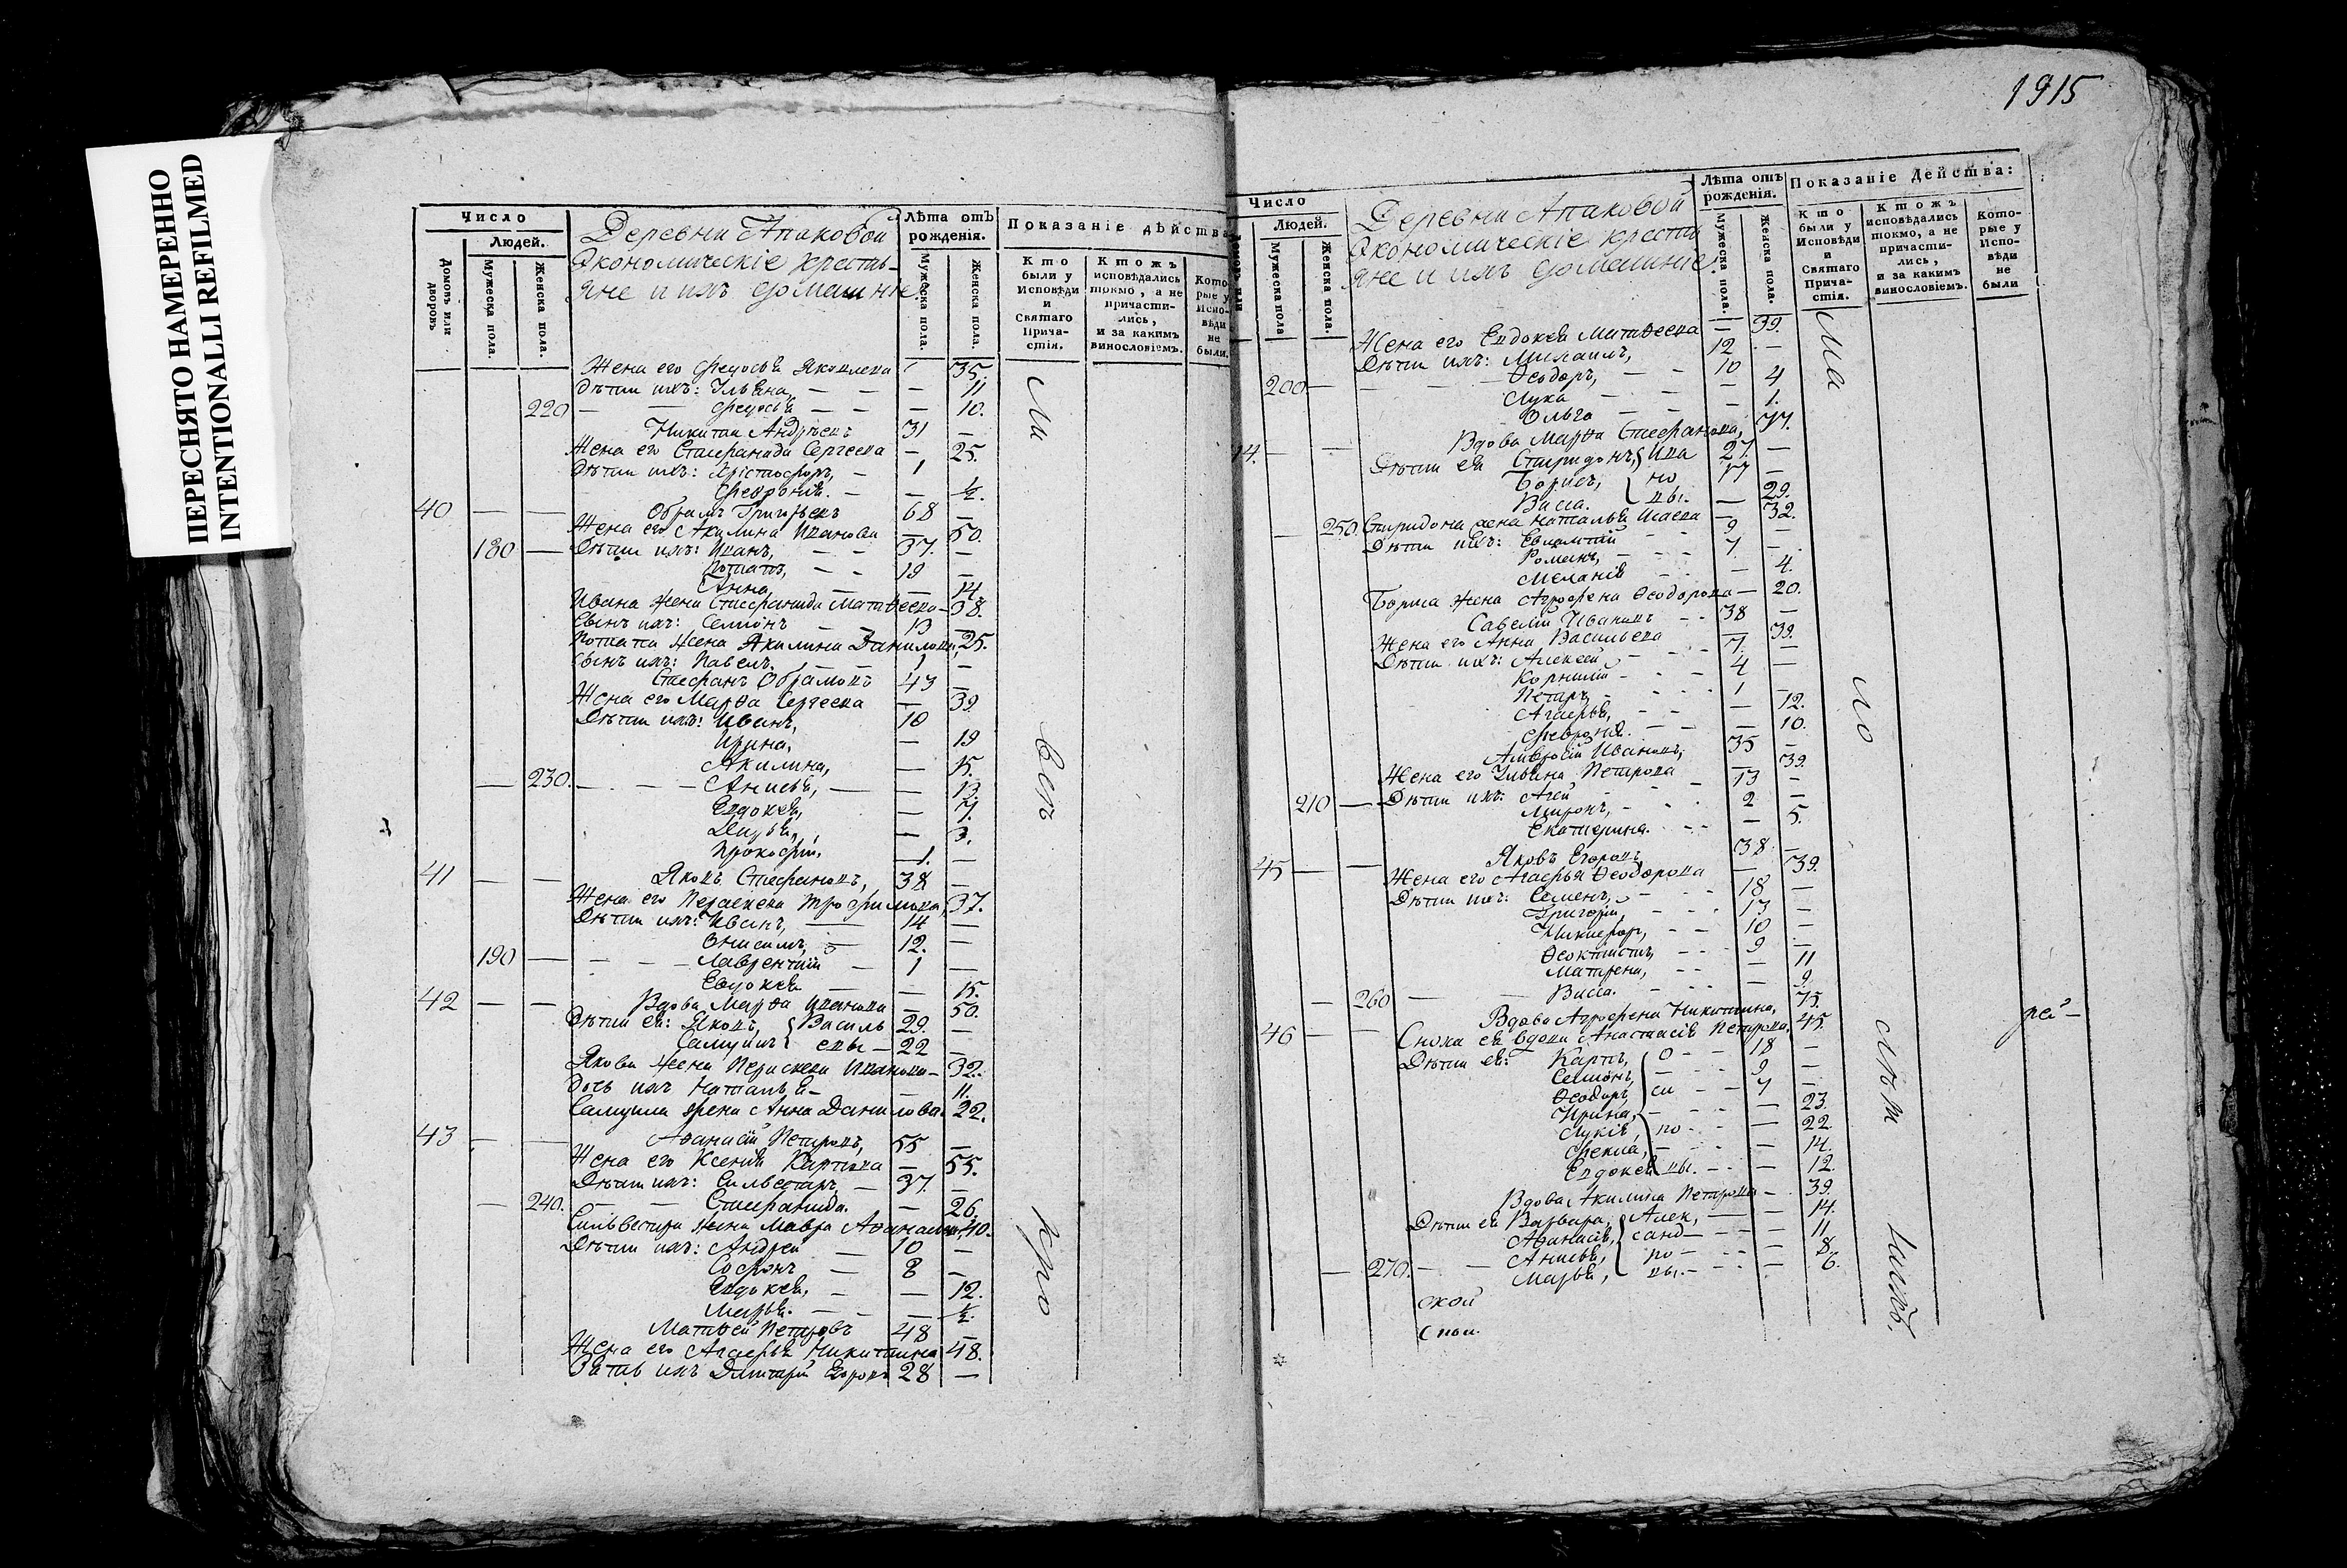 ПЕРЕСНЯТО НАМЕРЕННО
INTENTIONALLI REFILMED
Число
Людей.
Домовъ или дворовъ
Мужеска пола.
Женска пола.
Деревни Апаковой
Экономическіе кресть-
яне и ихъ домашніе
Лѣта отъ рожденія.
Мужеска пола.
Женска пола.
Показаніе дѣйства
Кто были у Исповѣди и Святаго Прича- стія.
Ктожъ исповѣдались токмо, а не причасти- лись, и за какимъ винословіемъ.
Кото- рые у Испо- вѣди не были.
Жена его Федосья Яковлева 35.
Дѣти ихъ: Ульяна, — — — 11
220 — — Федосья — — — 10.
Никита Андреевъ 31 —
Жена его Стефанида Сергеева — 25.
Дѣти ихъ: Христофоръ, — 1
Феврониѣ. — — ½.
40 — — Обрамъ Григорьевъ 68 —
Жена его Акилина Иванова — 50.
180 — Дѣти ихъ: Иванъ, — — 37. —
Потапъ, — — 19 —
Анна, — 14
Ивана жена Стефанида Матвеева — 38.
Сынъ ихъ: Семіонъ — 13 —
Потапа жена Акилина Данилова, 25.
Сынъ ихъ: Павелъ. — — 1 —
Стефанъ Обрамовъ 43 —
Жена его Марѳа Сергеева — 39
Дѣти ихъ: Иванъ, 10
Ирина, — 19
Акилина, — 15.
— 230. — — — Анисья, — — 13
Евдокея, — 7.
Дарья, — 3.
Прокофій, — 1. —
41 — — Яковъ Стефановъ, 38 —
Жена его Параскева Трофимова, 37.
Дѣти ихъ: Иванъ, — 14 —
Онисимъ, — 12. —
190 — — — — Лаврентий — 1 —
Евдокея — — 15.
42 — — Вдова Марѳа Иванова — 50.
Дѣти ея: Яковъ, Василь 29. —
Самуилъ евы — 22 —
Якова жена Параскева Иванова — 32.
Дочь ихъ Наталья — — 11.
Самуила жена Анна Данилова. 22.
43 — — Аѳанасій Петровъ, 55 —
Жена его Ксения Карпова — 55.
Дѣти ихъ: Сильвестръ — 37. —
— 240. — — Стефанида. — 26.
Сильвестра жена Мавра Аѳанасьева, 40.
Дѣти ихъ: Андрей — 10 —
Софронъ — 8 —
Евдокея, — — 12.
Марья. — — — ½.
Матѳей Петровъ 48 —
Жена его Агафья Никитина 48.
Зять ихъ Дмитрій Егоровъ 28 —
Ми
всѣ
1915
Число
Людей.
Мужеска пола
Женска пола.
Деревни Апаковой
Экономическіе кресть
яне и ихъ домашніе
Лѣта отъ рожденія.
Мужеска пола.
Женска пола.
Показаніе Действа:
Кто были у Исповѣди и Святаго Прича- стія.
Ктожъ исповѣдались токмо, а не причасти- лись, и за какимъ винословіемъ.
Кото- рые у Испо- вѣди не были
Жена его Евдокея Матвеева — 39.
Дѣти ихъ: Михаилъ, 12 —
200 — — — Ѳеодоръ, — — 10
Лука — 4
Ольга — — — 1.
44. — — Вдова Марѳа Стефанова, 77.
Дѣти ея Спиридонъ, Ива 27. —
Борисъ, но 17 —
Васса. вы. — 29.
— 250. Спиридона жена Наталья Исаева — 32.
Дѣти ихъ: Евлампий 9 —
Романъ, — — 7 —
Меланія — 4.
Бориса жена Агрофена Ѳеодорова — 20.
Савелій Ивановъ — 38 —
Жена его Анна Васильева 39.
Дѣти ихъ: Алексей 7. —
Корнилий — 4 —
Петръ — 1 —
Агафья, — — — 12.
Феврония. — — 10.
Амвросій Ивановъ, 35 —
Жена его Ульяна Петрова — 39.
210 — Дѣти ихъ: Агей — 13 —
Миронъ, — 2 —
Екатерина. — — — 5.
45 — — Яковъ Егоровъ, 38 —
Жена его Агафья Ѳеодорова — 39.
Дѣти ихъ: Семенъ, 18 —
Григорій, — — 13 —
Никифоръ, — — 10 —
Ѳеоктистъ, — — 9 —
Матрена, — — — 11
— 260 — — Васса. — — 9.
46 — — Вдова Агрофена Никитина, 75.
Сноха ея вдова Анастасія Петрова, 45.
Дѣти ея: Карпъ, О — — 18 —
Семіонъ, — — — 9 —
Ѳеодоръ, си — — 7 —
Ирина, — — — — 23.
Лукія, по — — 22.
Фекла, — — — — 14.
Евдокея вы. — — — 12.
Вдова Акилина Петрова — 39.
Дѣти ея Варвара, Алек, — — 14.
Аѳанасія, санд — — — 11.
Анисья, ро — — — 8.
— 270. — — Марья, вы. — — — 6.
ской